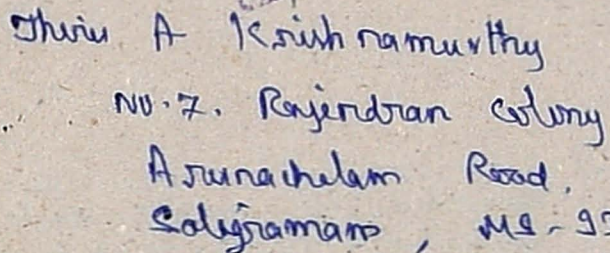 Thiru A Krishnamurthy
No. 7. Rajendran Colony
Arunachalam Road,
Saligramam, MS - 93